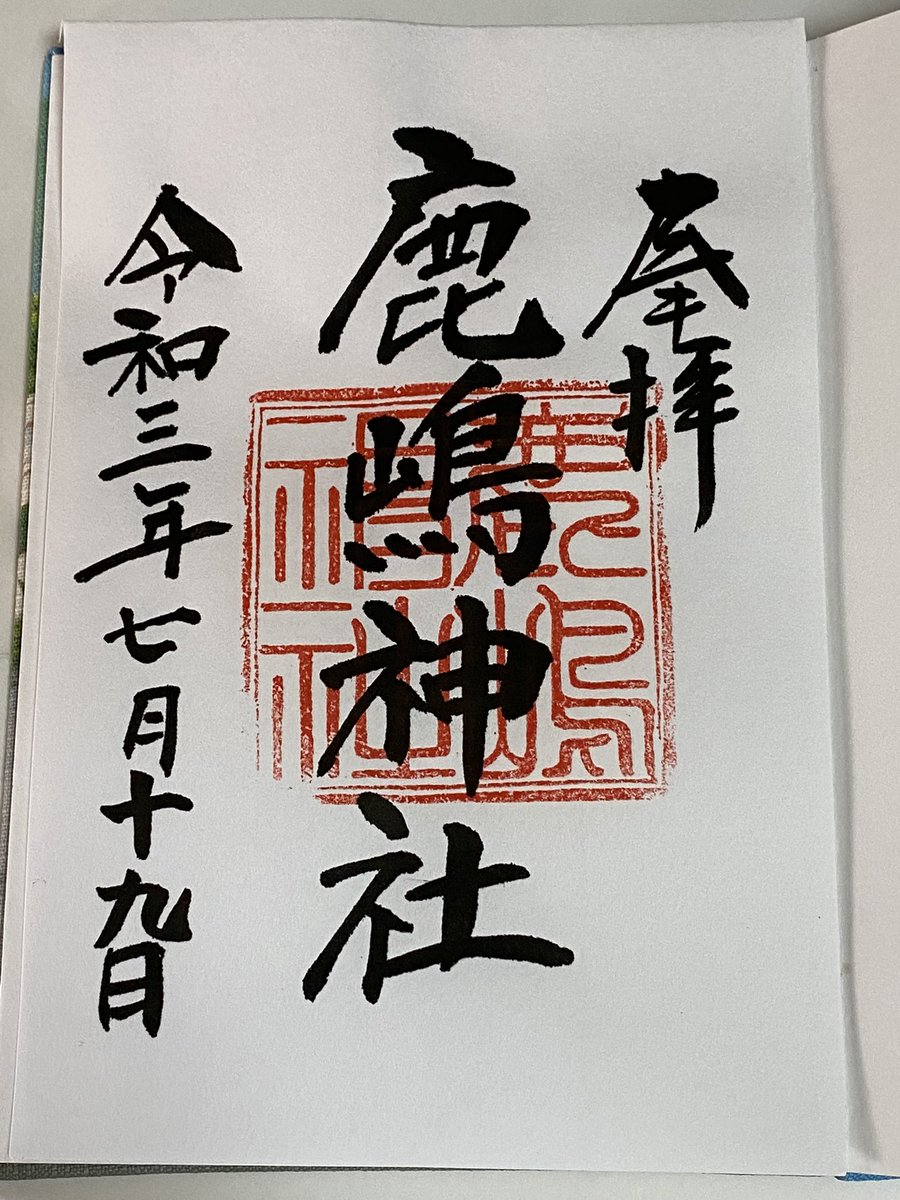 奉拝
鹿嶋神社
令和三年七月十九日
鹿嶋
神社